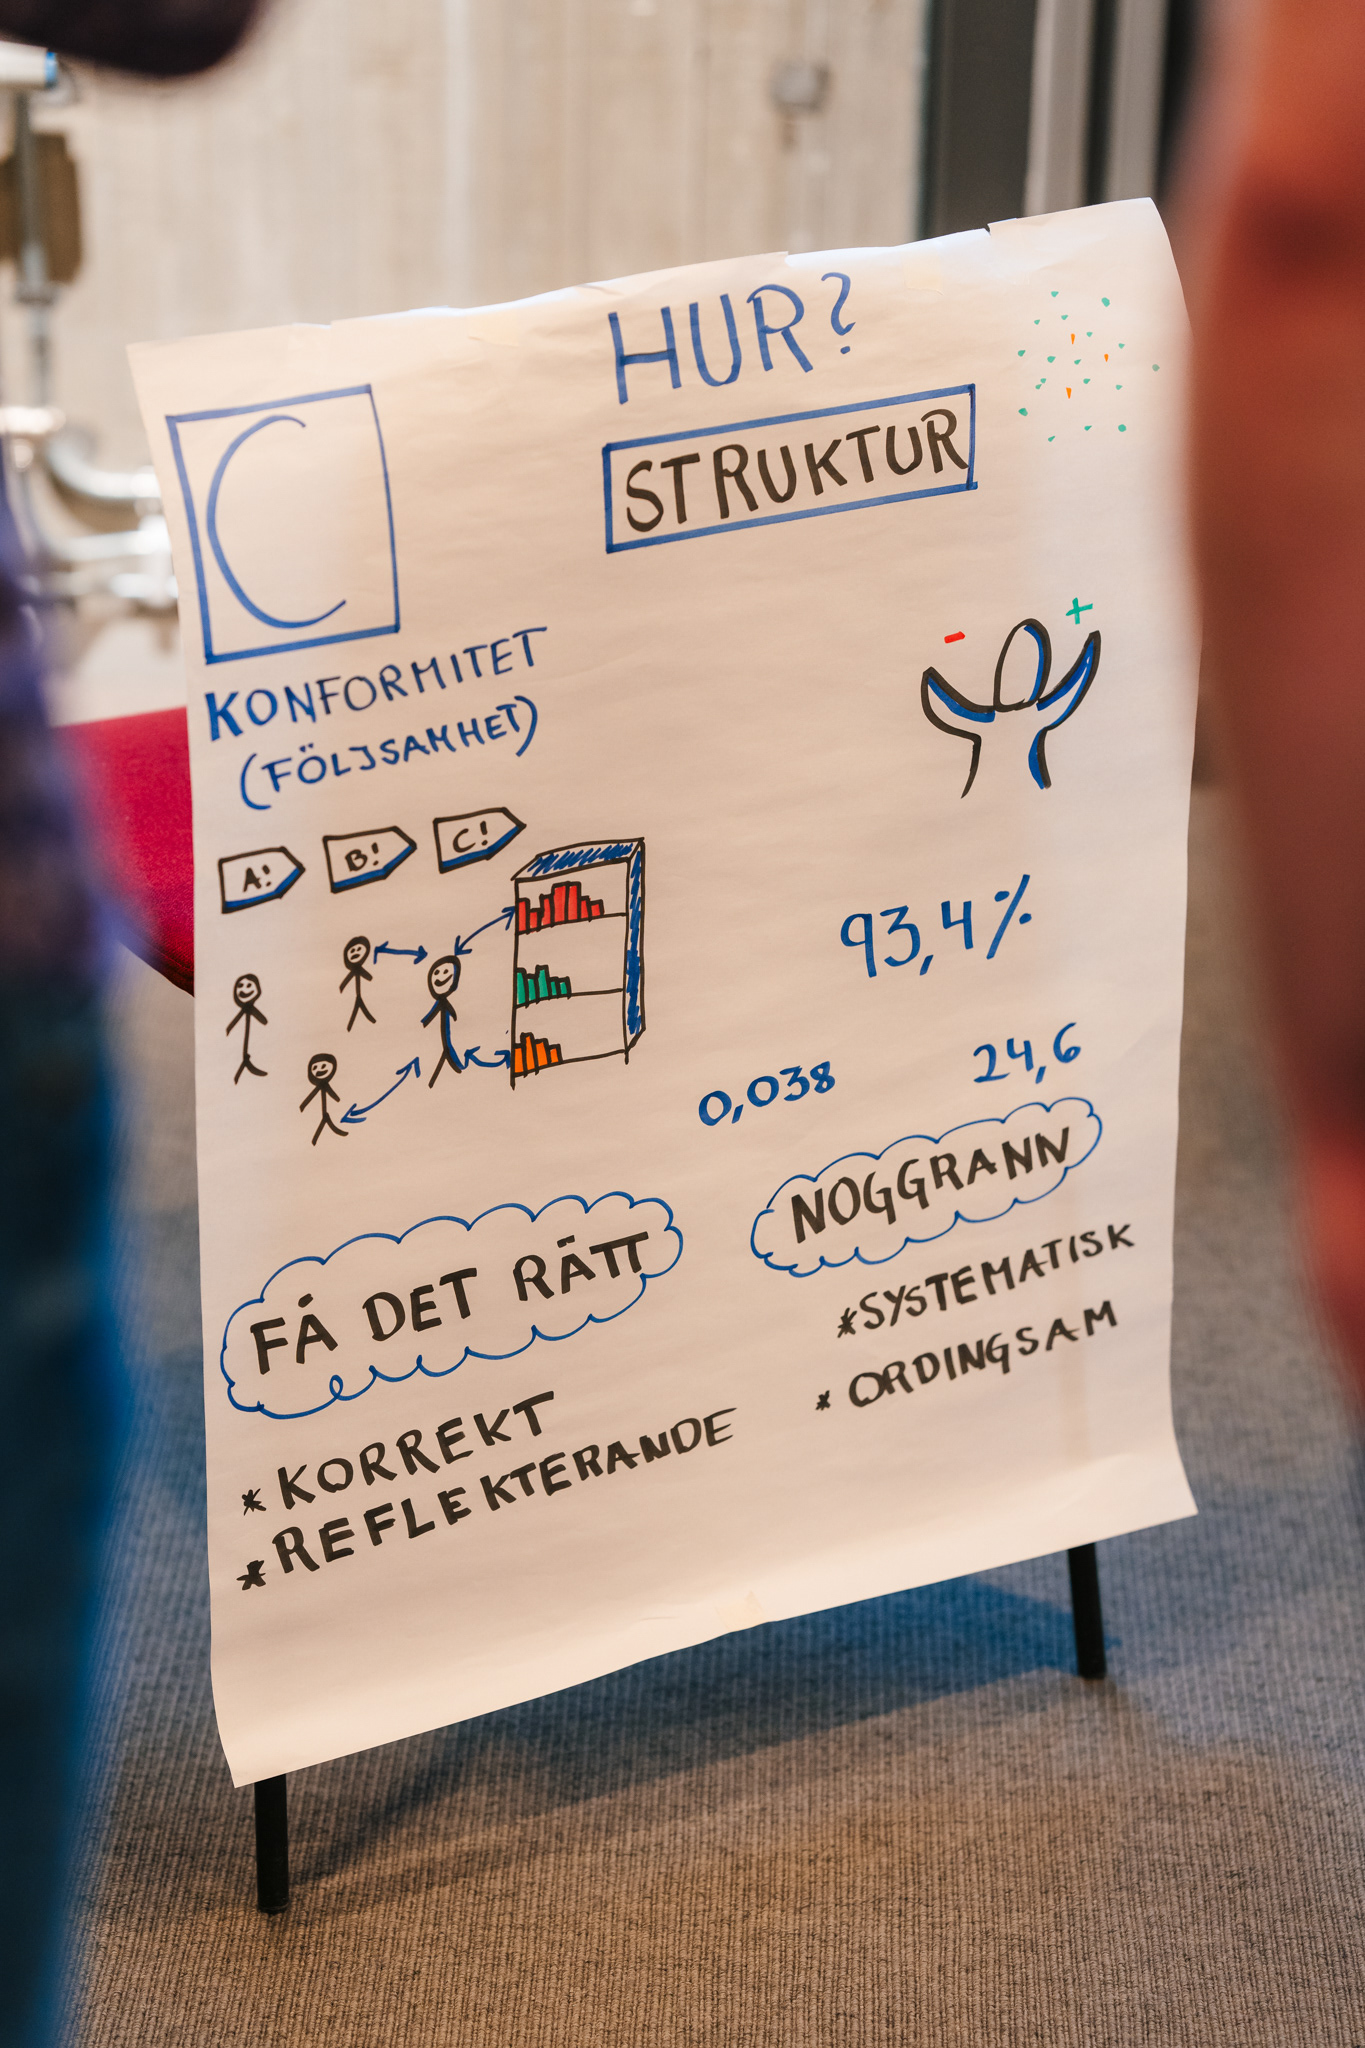 HUR?
C
STRUKTUR
KONFORMITET
(FÖLJSAMHET)
- +
A! B! C!
93,4%
0,038 24,6
NOGGRANN
*SYSTEMATISK
* ORDINGSAM
FÅ DET RÄTT
* KORREKT
*REFLEKTERANDE